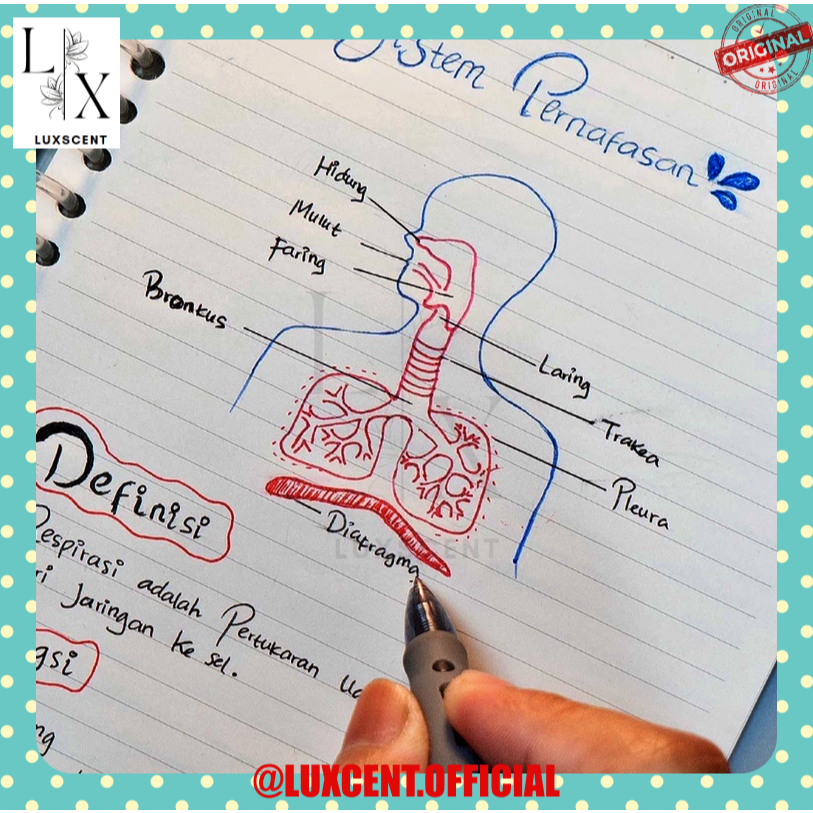 L X
LUXSCENT
ORIGINAL
ORIGINAL
ORIGINAL
Sistem Pernafasan
Hidung
Mulut
Faring
Bronkus
Laring
Trakea
Pleura
Diafragma
LUXSCENT
Definisi
Respirasi adalah Pertukaran
ri Jaringan Ke sel.
gsi
ng
@LUXCENT.OFFICIAL